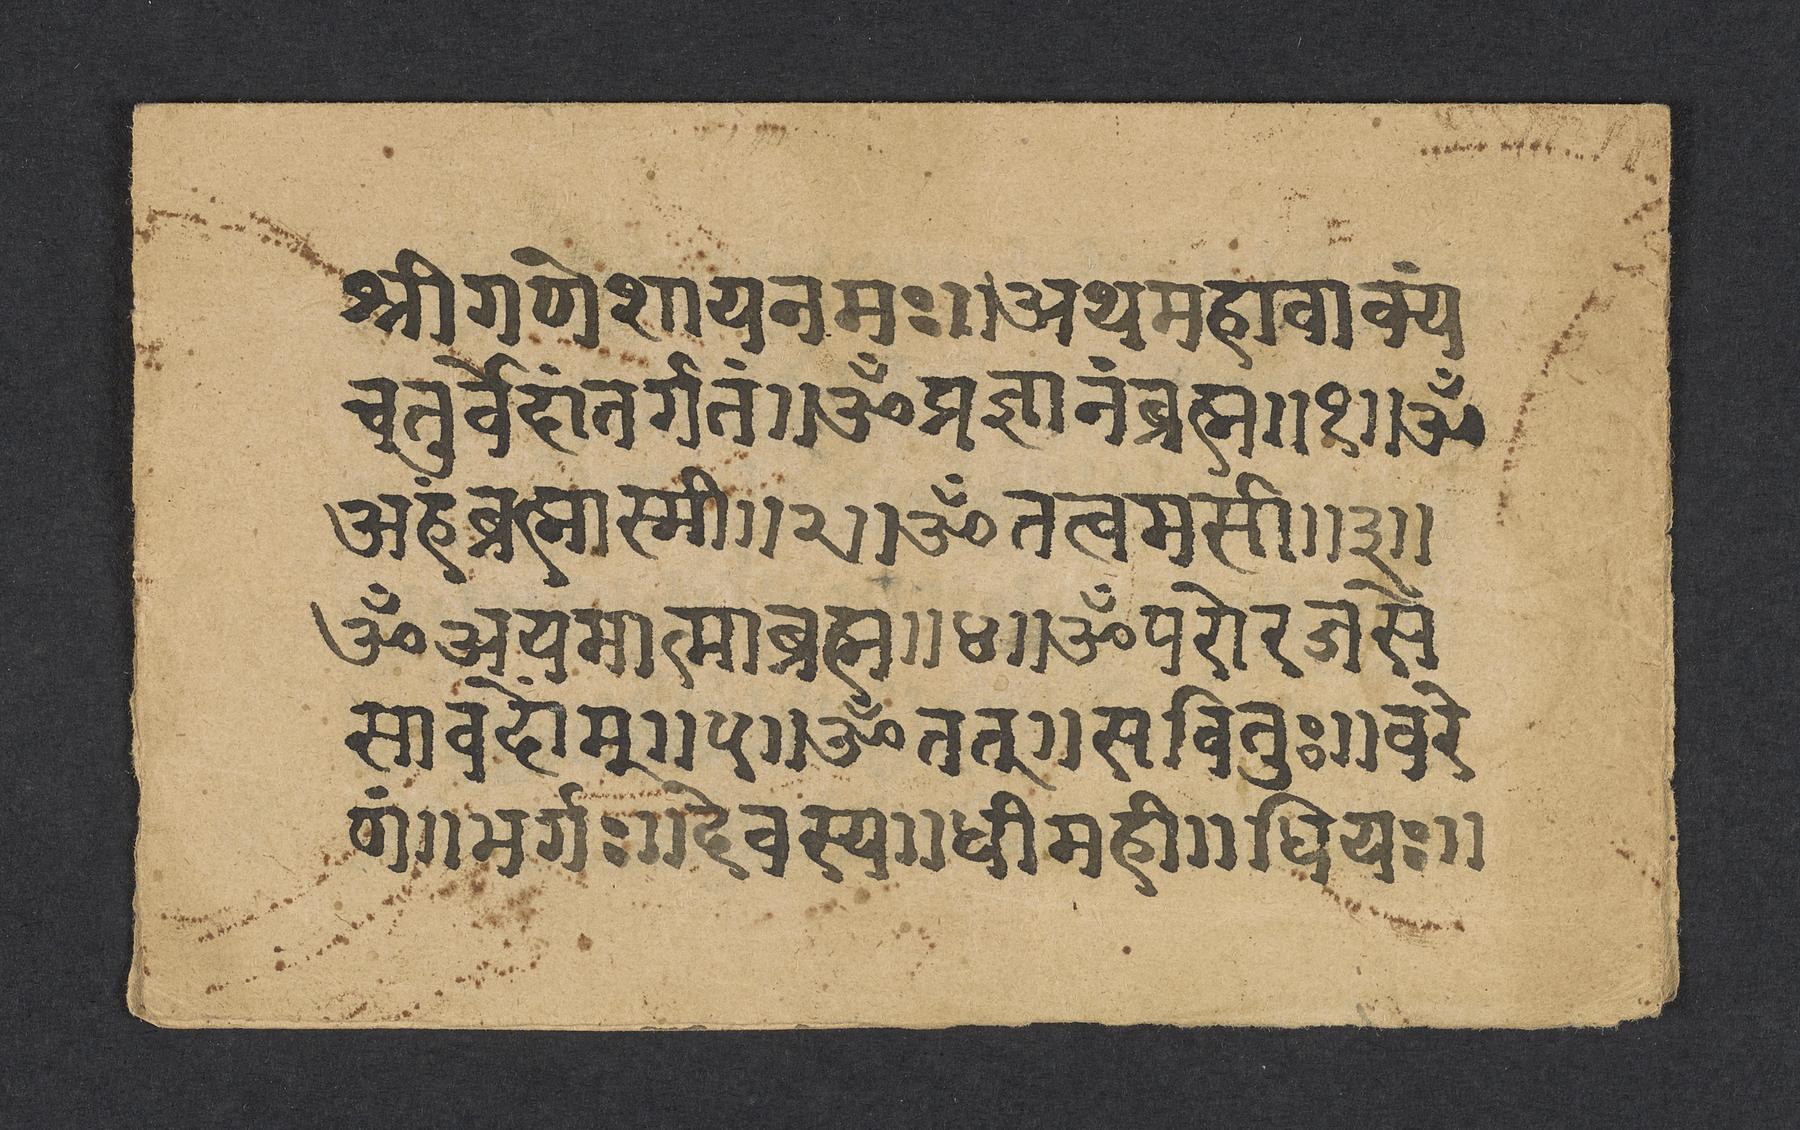 श्रीगणेशायनमः॥अथमहावाक्यं
चतुर्वेदांतर्गतं॥ॐप्रज्ञानंब्रह्म॥१॥ॐ
अहंब्रह्मास्मी॥२॥ॐतत्वमसी॥३॥
ॐअयमात्माब्रह्म॥४॥ॐपरोरजसे
सावदोंम्॥५॥ॐतत्॥सवितुः॥वरे
णं॥भर्गः॥देवस्य॥धीमही॥धियः॥